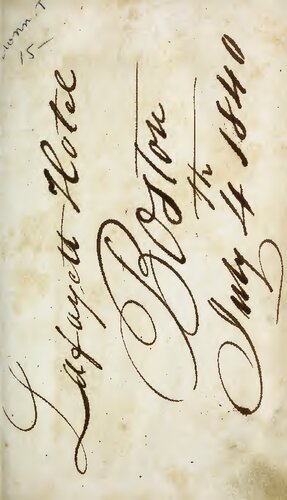 Lafayett Hotel
Boston
July 4th 1840